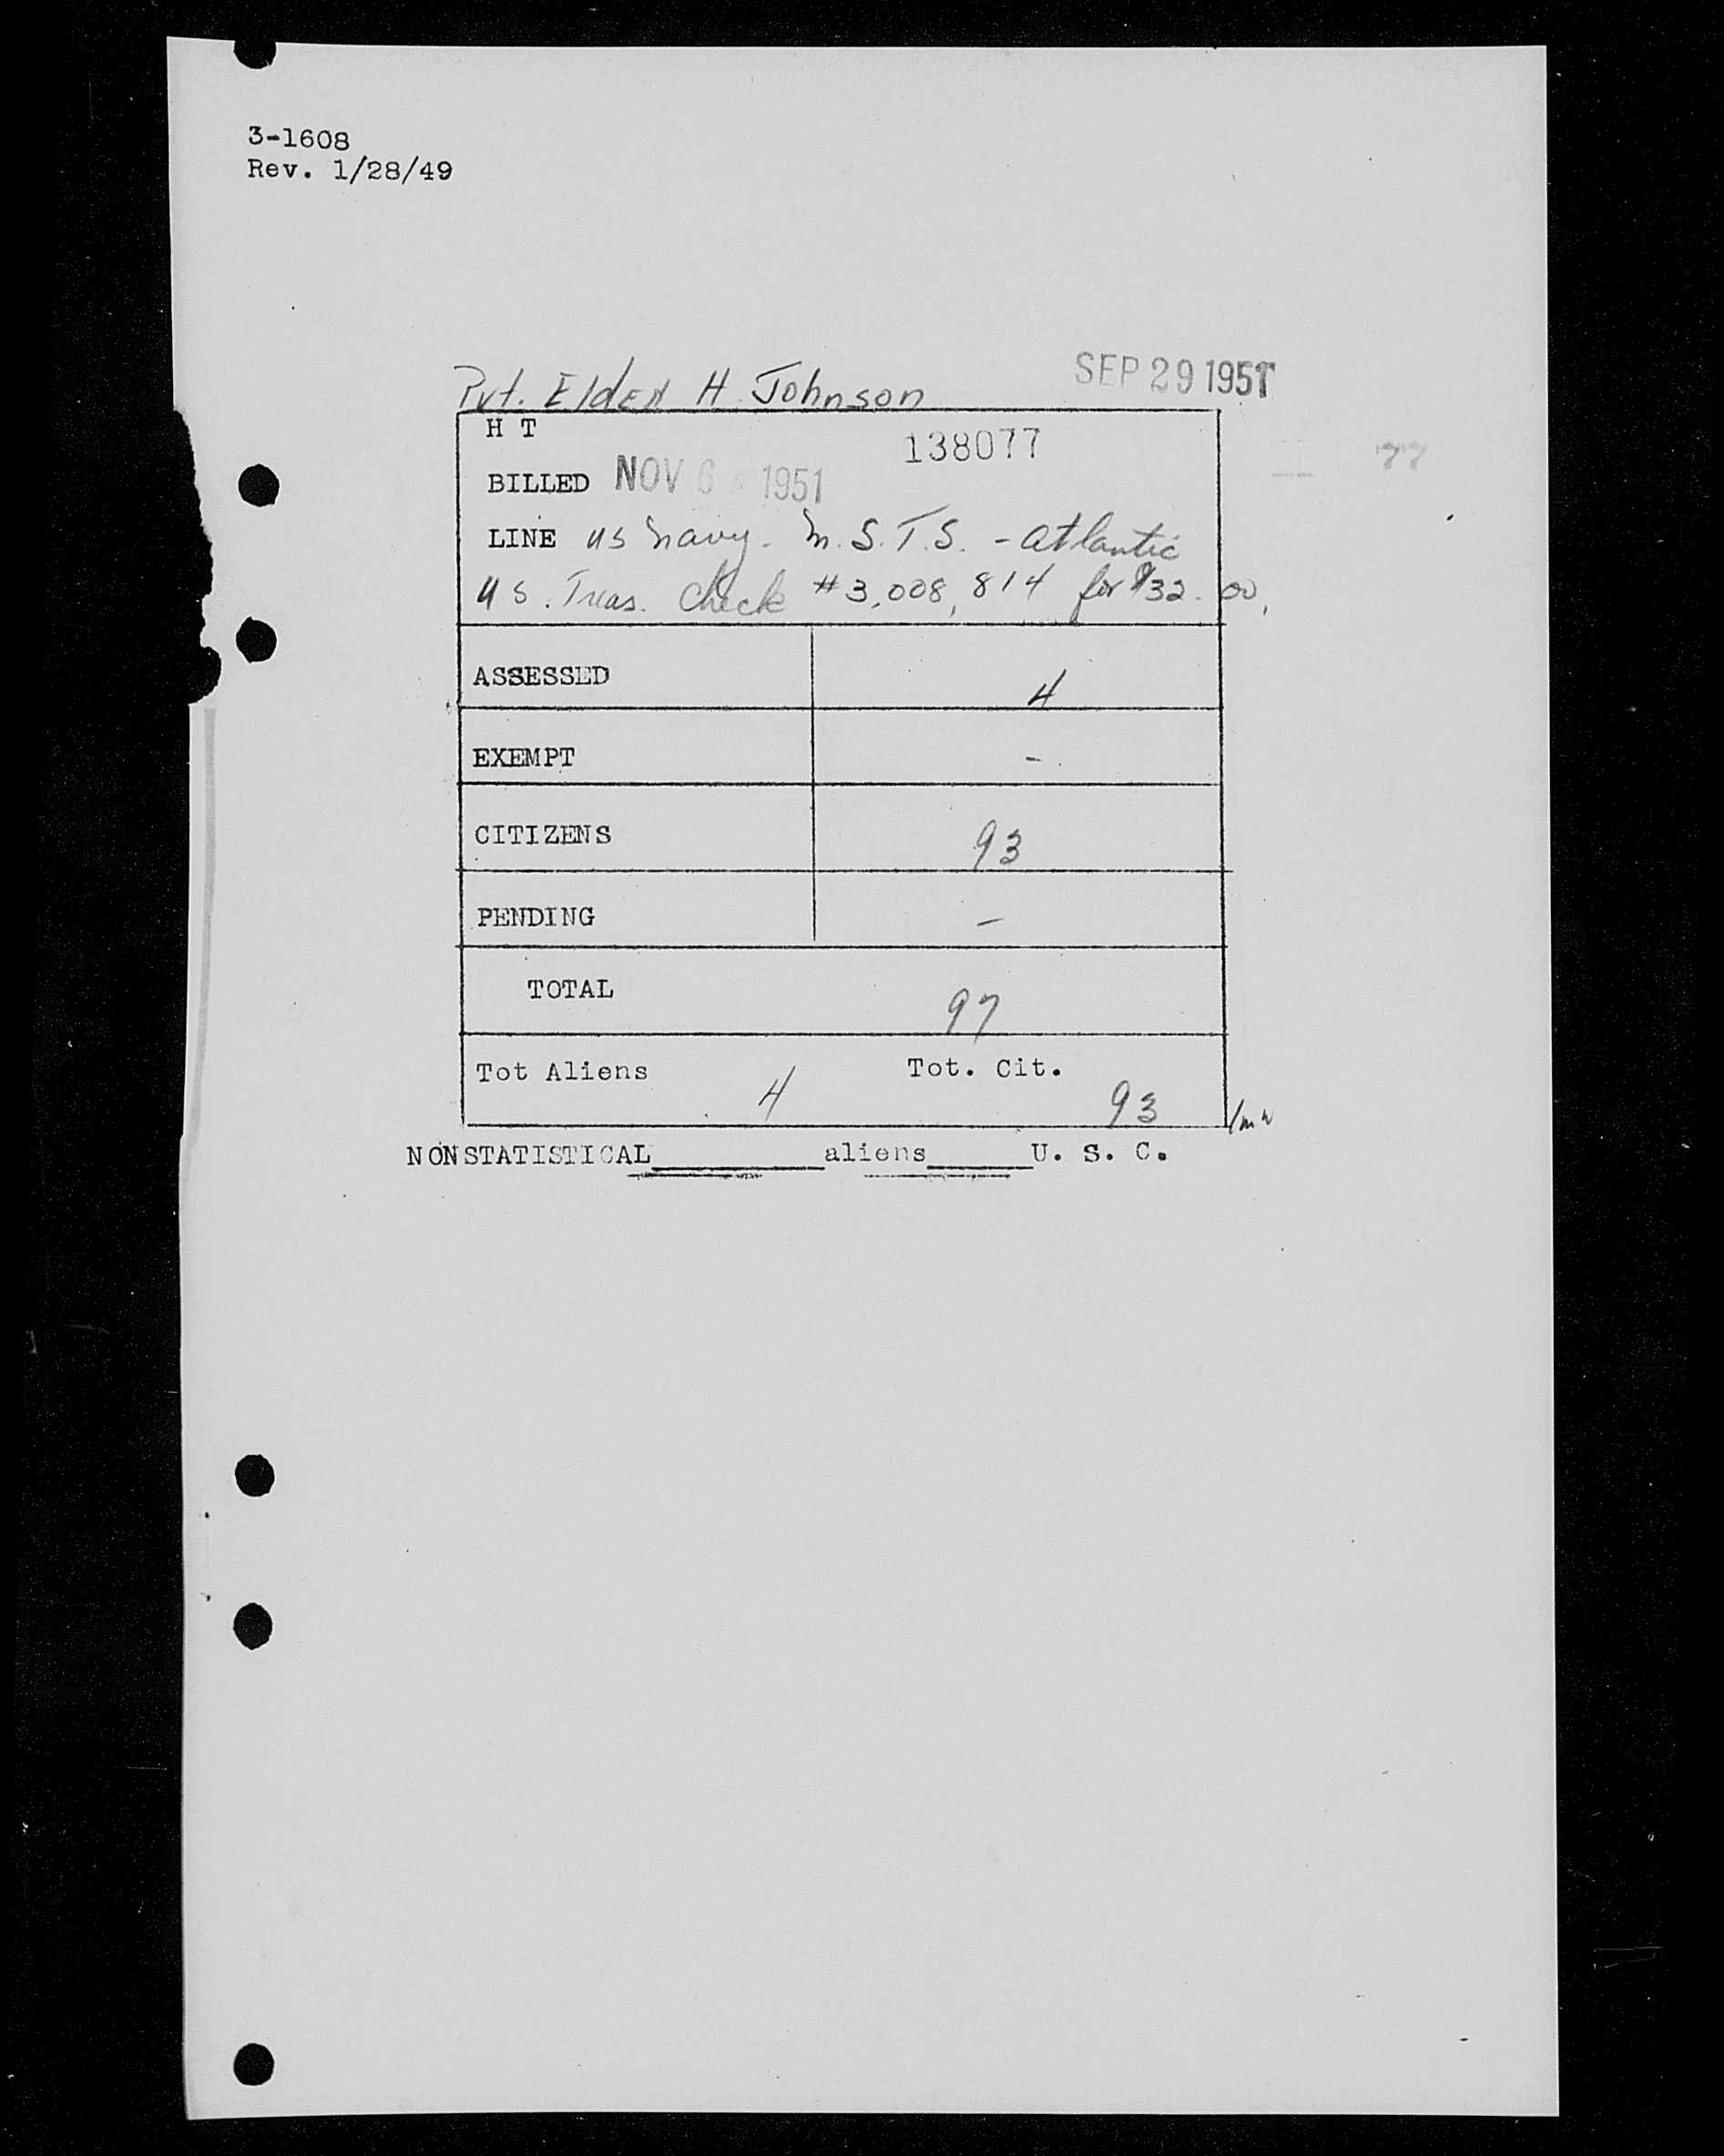 3-1608
Rev. 1/28/49
Pvt. Elden H. Johnson SEP 29 1951
H T 138077
BILLED NOV 6 1951
LINE US Navy - M.S.T.S. - Atlantic
U.S. Treas. Check #3,008,814 for $32.00,
ASSESSED 4
EXEMPT -
CITIZENS 93
PENDING -
TOTAL 97
Tot Aliens 4 Tot. Cit. 93
NONSTATISTICAL aliens U. S. C.